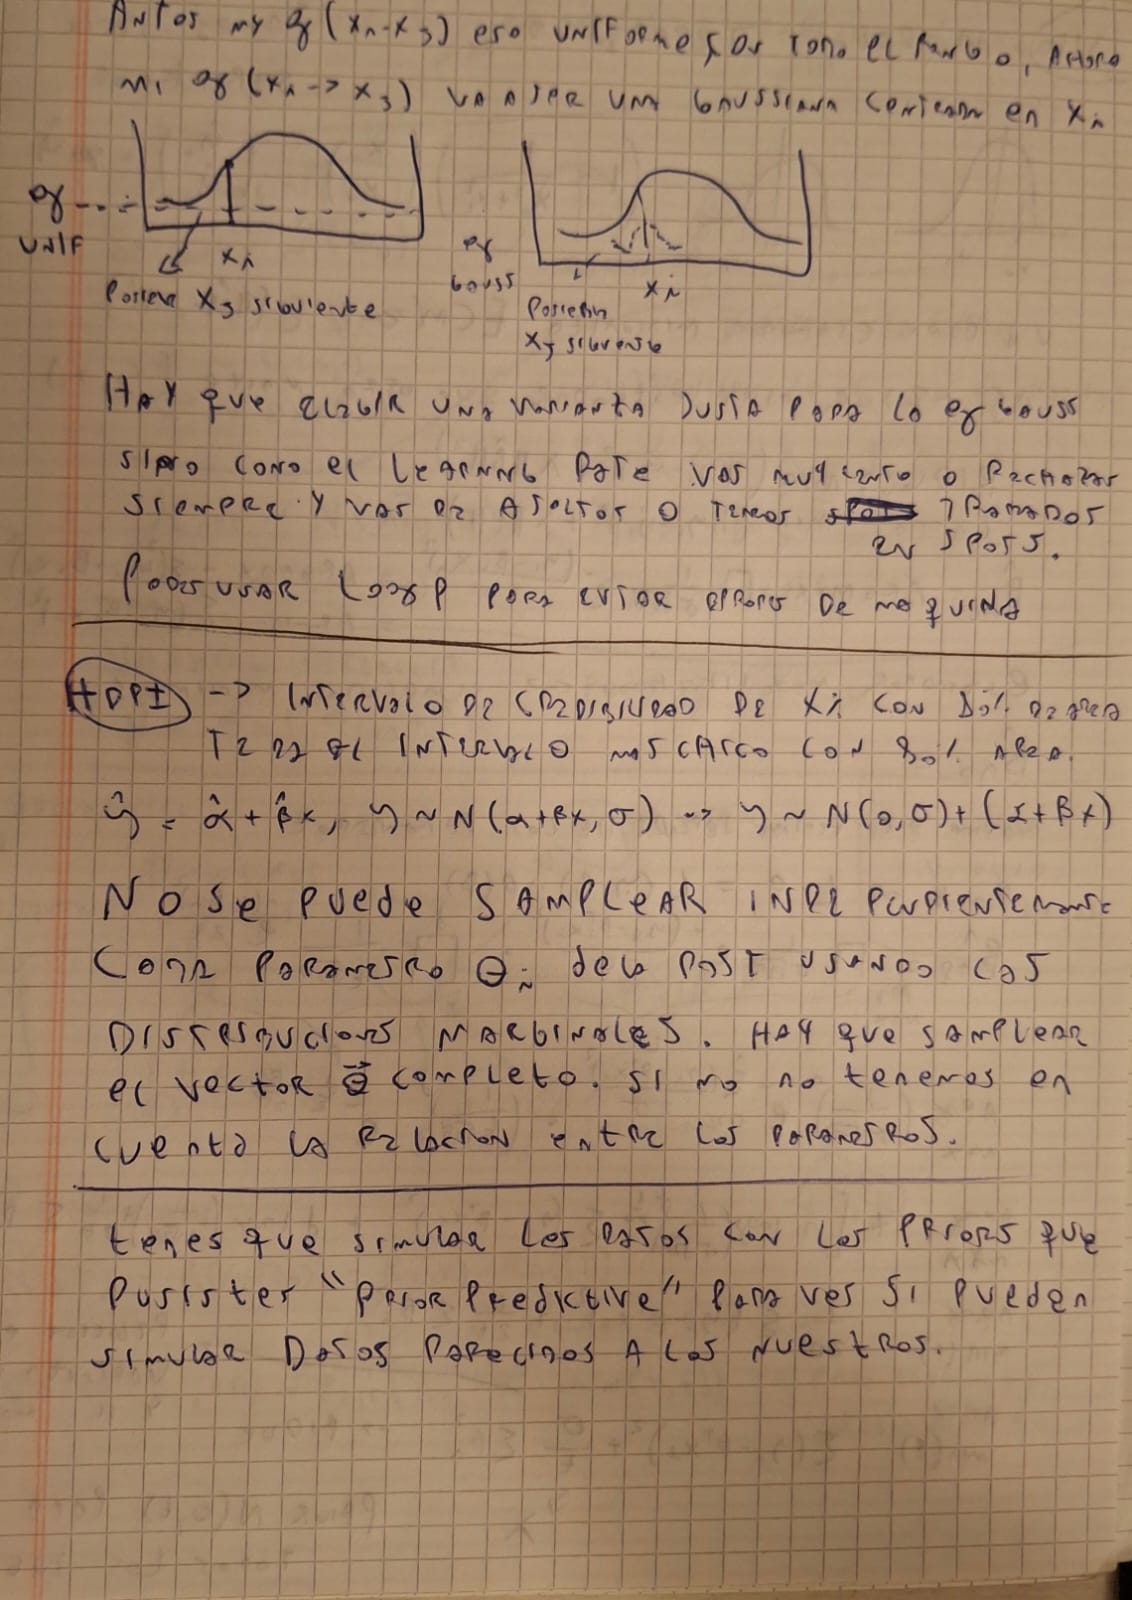 Antes my q(xi→xj) era uniforme por todo el rango, ahora
mi q(xi→xj) va a ser una gaussiana centrada en xi
q
UNIF
xi
q
Gauss
xi
Posible xj siguiente
Posible
xj siguiente
Hay que elegir una varianza justa para la q Gauss
sino como el learning rate vas muy lento o rechazas
siempre y vas de a saltos o tenes trabados
en spots.
Podes usar log p para evitar errores de maquina
HDPI -> Intervalo de credibilidad de xi con % de area
te da el intervalo mas chico con 80% area.
ŷ = α̂ + β̂x, y ~ N(α+βx, σ) -> y ~ N(0,σ) + (α+βx)
No se puede samplear independientemente
cada parametro θi de la post usando las
distribuciones marginales. Hay que samplear
el vector θ⃗ completo. Si no no tenemos en
cuenta la relacion entre los parametros.
tenes que simular los datos con los priors que
pusistes "prior predictive" para ver si pueden
simular datos parecidos a los nuestros.